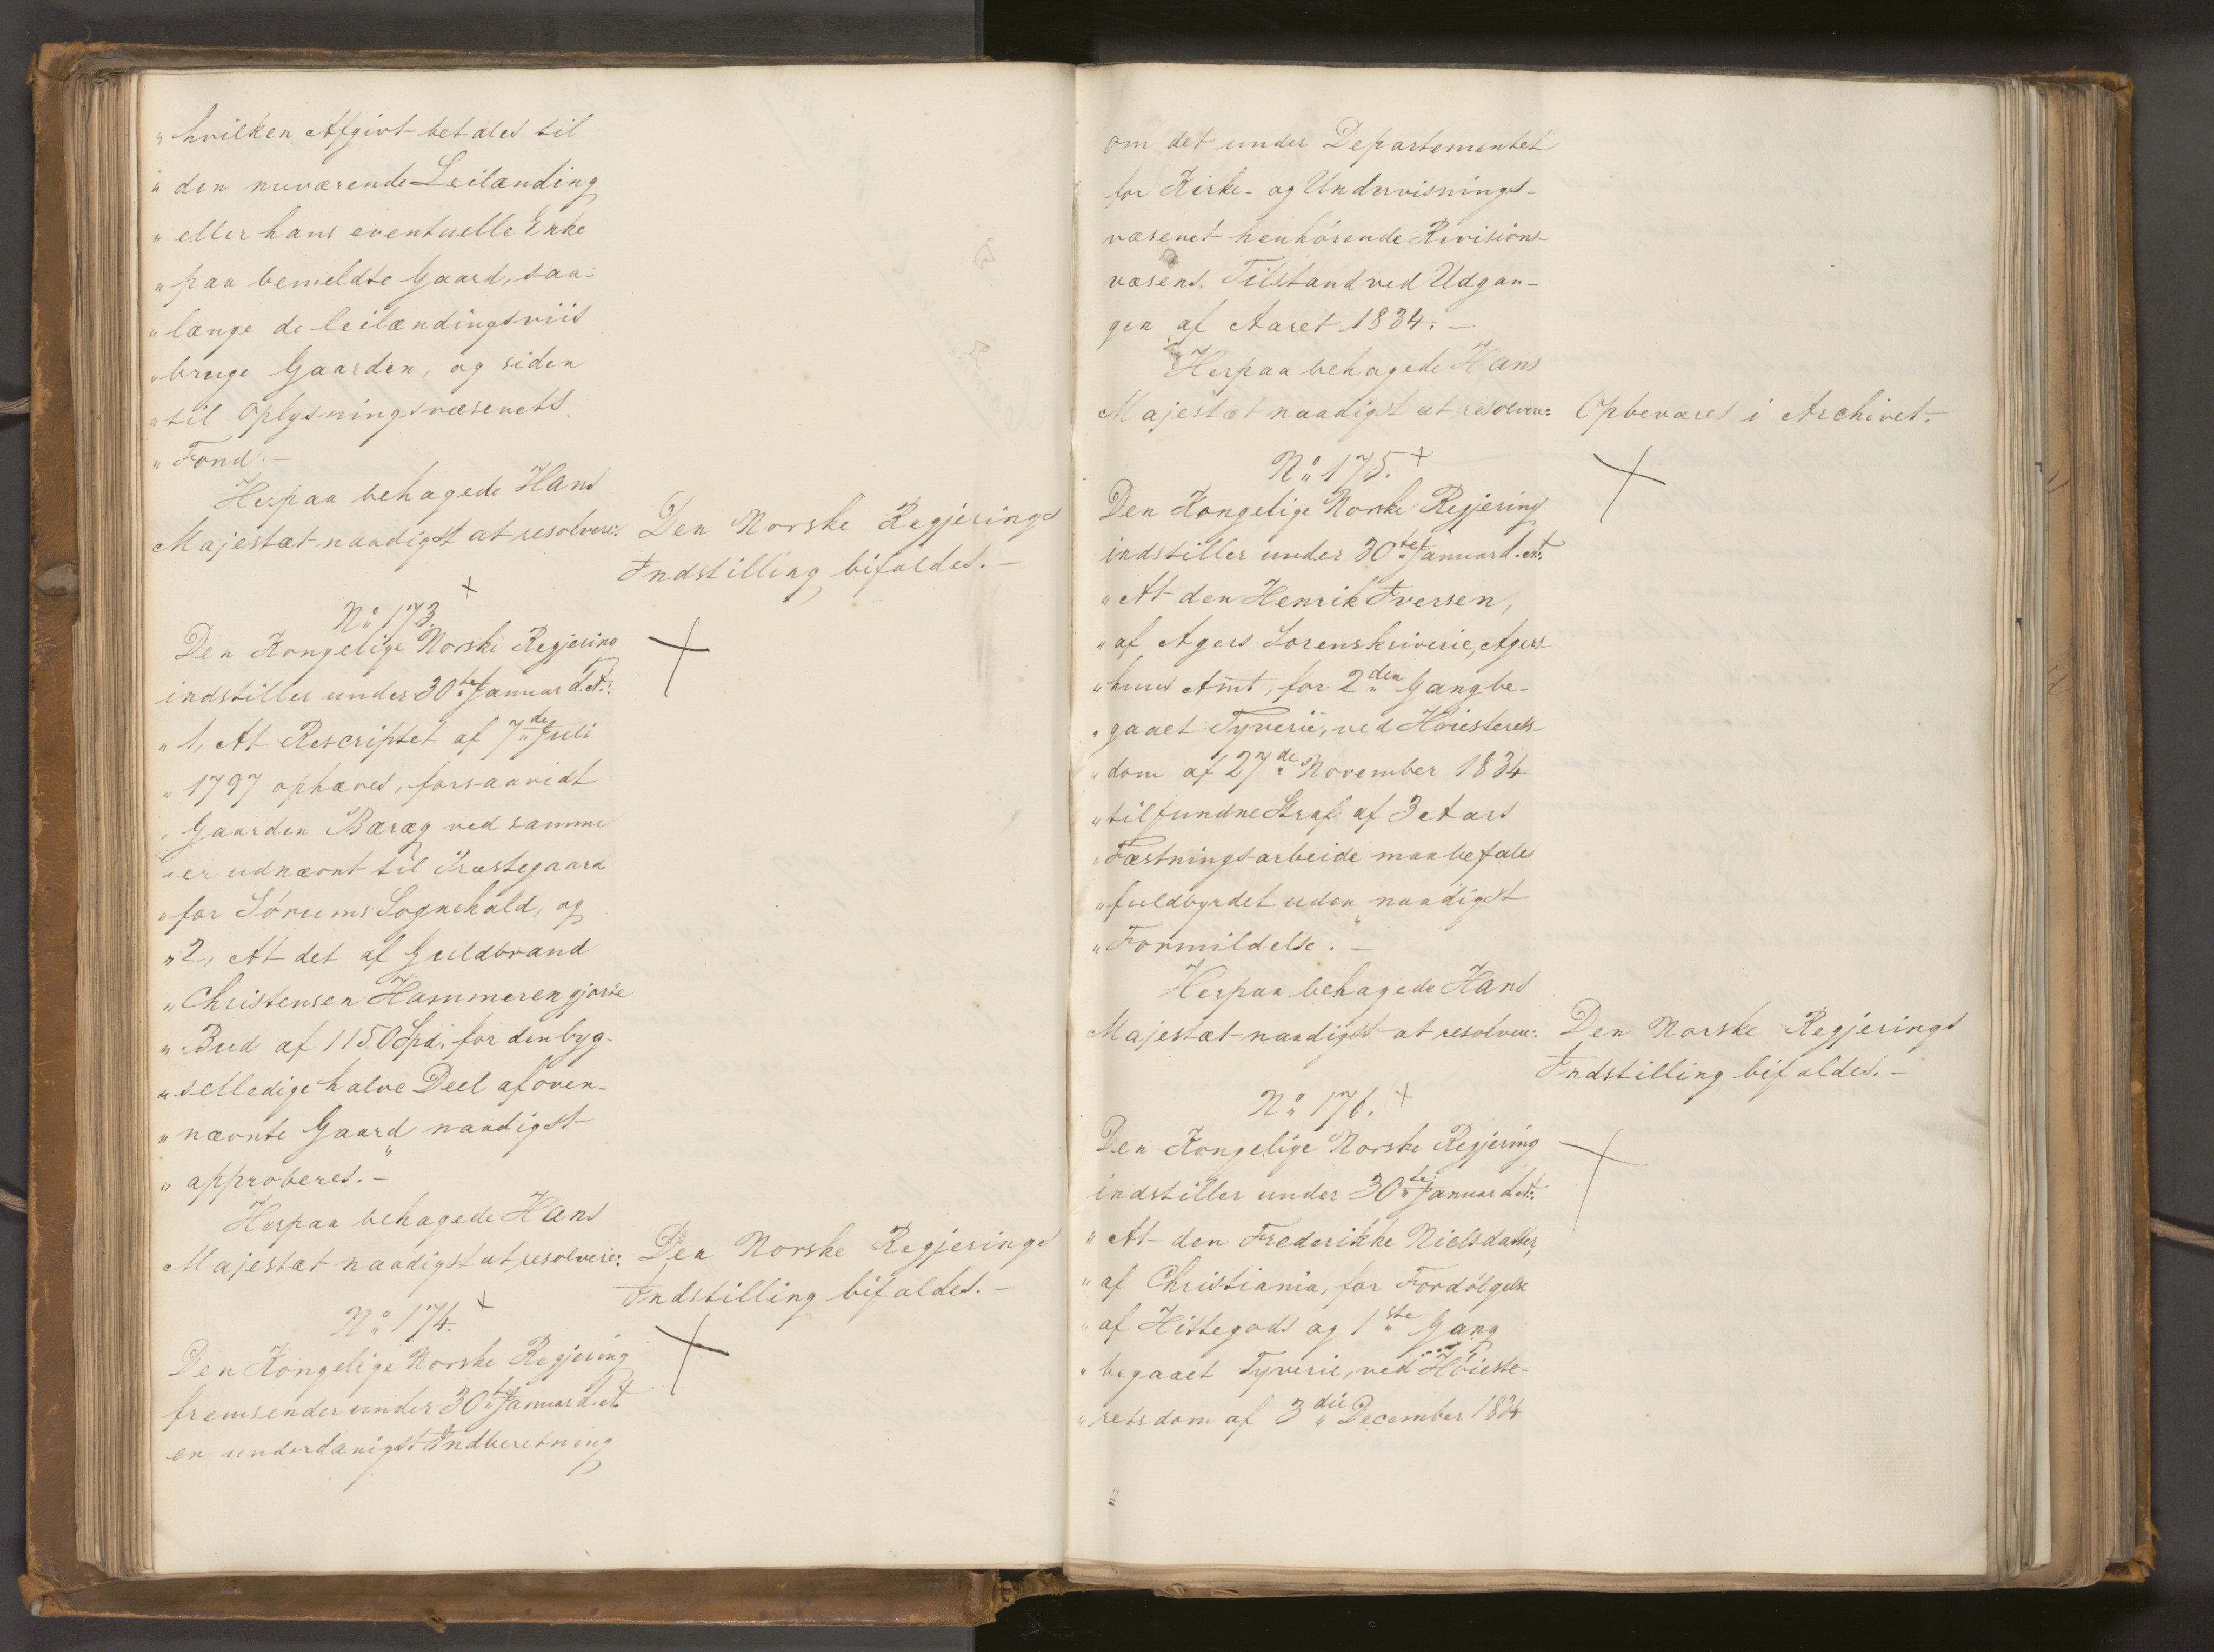 "hvilken Afgivt betales til
"den nuværende Leilænding
"eller hans eventuelle Enke
"paa bemeldte Gaard, saa-
"længe de leilændingsviis
"bruge Gaarden, og siden
"til Oplysningsvæsenets
"Fond.-
Herpaa behagede Hans
Majestæt naadigst at resolvere: Den Norske Regjerings
Indstilling bifaldes.-
No 173. +
Den Kongelige Norske Regjering
indstiller under 30te Januar d. A.:
"1, At Rescriptet af 7de Juli
"1797 ophæves, forsaavidt
"Gaarden Baræg ved samme
"er udnævnt til Præstegaard
"for Sörums Sognekald, og
"2, At det af Guldbrand
"Christensen Hammeren gjorte
"Bud af 1150 Spd. for den byg-
"selledige halve Deel af oven-
"nævnte Gaard naadigst
"approberes.-
Herpaa behagede Hans
Majestæt naadigst at resolvere: Den Norske Regjerings
Indstilling bifaldes.-
No 174. +
Den Kongelige Norske Regjering
fremsender under 30te Januar d. A.
en underdanigst Indberetning
om det under Departementet
for Kirke- og Undervisnings-
væsenet henhörende Revisions-
væsens Tilstand ved Udgan-
gen af Aaret 1834.-
Herpaa behagede Hans
Majestæt naadigst at resolvere: Opbevares i Archivet.
No 175. +
Den Kongelige Norske Regjering
indstiller under 30te Januar d. A.:
"At den Henrik Iversen,
"af Agers Sorenskriverie, Agers-
"huus Amt, for 2den Gang be-
"gaaet Tyverie, ved Höiesterets-
"dom af 27de November 1834
"tilfundne Straf af 3 Aars
"Fæstningsarbeide maa befales
"fuldbyrdet uden naadigst
"Formildelse.-
Herpaa behagede Hans
Majestæt naadigst at resolvere: Den Norske Regjerings
Indstilling bifaldes.-
No 176. +
Den Kongelige Norske Regjering
indstiller under 30te Januar d. A.:
"At den Frederikke Nielsdatter,
"af Christiania, for Fordölgelse
"af Hittegods og 1ste Gang
"begaaet Tyverie, ved Höieste-
"retsdom af 3die December 1834